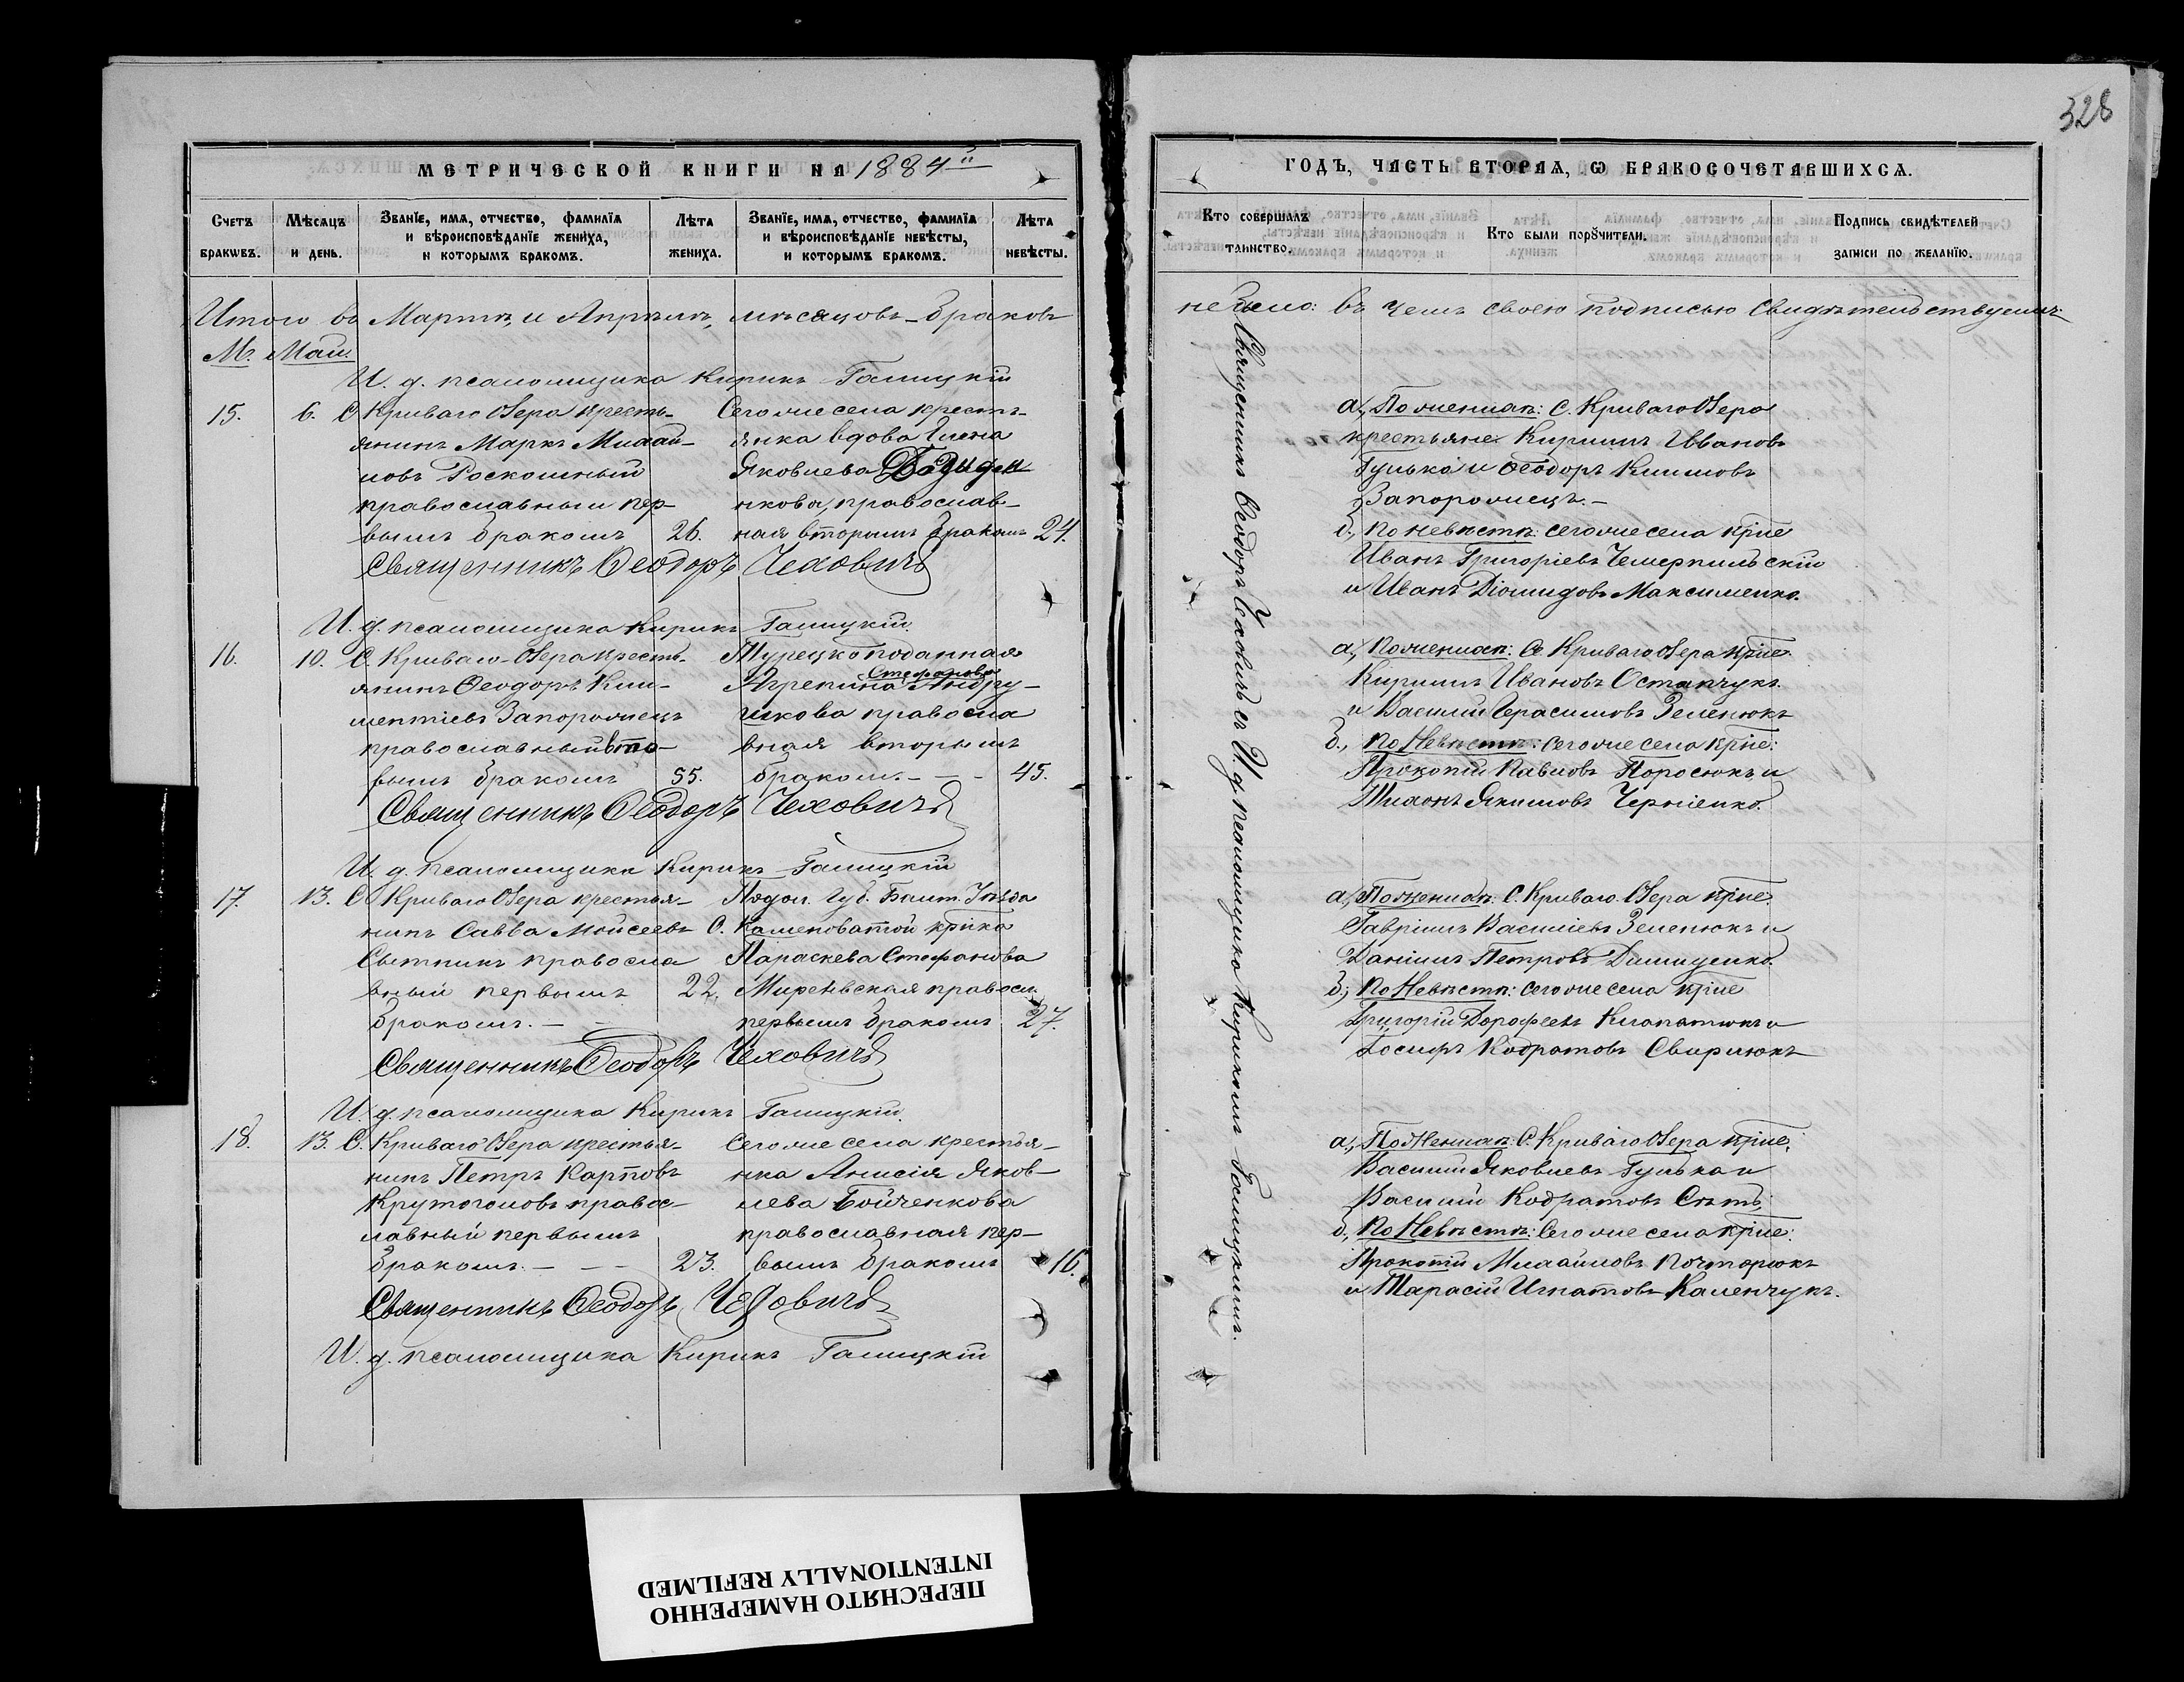 328
МЕТРИЧЕСКОЙ КНИГИ НА 1884й
Счетъ браковъ.
Мѣсяцъ и день.
Званїе, имѧ, отчество, фамилїа и вѣроисповѣданїе жениха, и которымъ бракомъ.
Лѣта жениха.
Званїе, имѧ, отчество, фамилїа и вѣроисповѣданїе невѣсты, и которымъ бракомъ.
Лѣта невѣсты.
Итого въ Мартѣ, и Апрѣлѣ, мѣсяцовъ - браковъ
М. Май.
И. д. псаломщика Кирикъ Галицкій
15. 6. С. Криваго Озера кресть-
янинъ Маркъ Михай-
ловъ Роскошный
православный пер-
вымъ бракомъ 26.
Сегоже села кресть-
янка вдова Елена
Яковлева
нкова, православ-
ная вторымъ бракомъ 24.
Священникъ Ѳеодоръ Чеховичъ
И. д. псаломщика Кирикъ Галицкій.
16. 10. С. Криваго-Озера кресть-
янинъ Ѳеодоръ Кли-
ментіевъ Запорожецъ
православный вто-
вымъ бракомъ 55.
Турецкоподанная
Стефанова
Агрепина Андру-
шкова правосла
вная вторымъ
бракомъ - - - 45.
Священникъ Ѳеодоръ Чеховичъ
И. д. псаломщика Кирикъ Галицкій
17. 13. С. Криваго Озера крестья-
нинъ Савва Мойсеевъ
Сытникъ правосла
вный первымъ 22.
бракомъ. - -
Подол. Губ. Балт. Уѣзда
С. Каменоватой крткa
Параскева Стефанова
Миревская правосл.
первымъ бракомъ 27.
Священникъ Ѳеодоръ Чеховичъ
И. д. псаломщика Кирикъ Галицкій.
18. 13. С. Криваго Озера крестья-
нинъ Петръ Карповъ
Крутоголовъ правос-
лавный первымъ
бракомъ. - - - 23.
Сегоже села крестья-
нка Анисія Яков-
лева Бойченкова
православная пер-
вымъ бракомъ 16.
Священникъ Ѳеодоръ Чеховичъ
И. д. псаломщика Кирикъ Галицкій
ГОДЪ, ЧАСТЬ ВТОРАѦ, Ѡ БРАКОСОЧЕТАВШИХСѦ.
Кто совершалъ таинство.
Кто были порꙋчители.
Подпись свидѣтелей записи по желанїю.
не было: въ чемъ своею подписью свидѣтельствуемъ:
Священникъ Ѳеодоръ Чеховичъ съ И. д. псаломщика Кирикомъ Галицкимъ.
а, По женихѣ: С. Криваго Озера
крестьяне Кирилъ Ивановъ
Гулька и Ѳеодоръ Климовъ
Запорожецъ. -
б., По невѣстѣ: сегоже села крне
Иванъ Григоріевъ Чемерпильскій
и Иванъ Діомидовъ Максименко.
а, По женихѣ: С. Криваго Озера крне.
Кирилъ Ивановъ Остапчукъ.
и Василій Герасимовъ Зеленюкъ
б., По Невѣстѣ: Сегоже села крне:
Прокопій Павловъ Поросюкъ и
Тихонъ Якимовъ Черніенко.
а, По женихѣ: С. Криваго Озера крне.
Гавріилъ Василіевъ Зеленюкъ и
Даніилъ Петровъ Данищенко.
б, По Невѣстѣ: Сегоже села крне
Григорій Дорофеевъ Клопатюкъ и
Іосифъ Кодратовъ Свирлюкъ
а, По Женихѣ: С. Криваго Озера крне.
Василій Яковлевъ Гулька и
Василій Кодратовъ Сѣть.
б., По Невѣстѣ: Сегоже села крне:
Прокопій Михайловъ Почторюкъ
и Тарасій Игнатовъ Каленчукъ.
ПЕРЕСНЯТО НАМЕРЕННО
INTENTIONALLY REFILMED